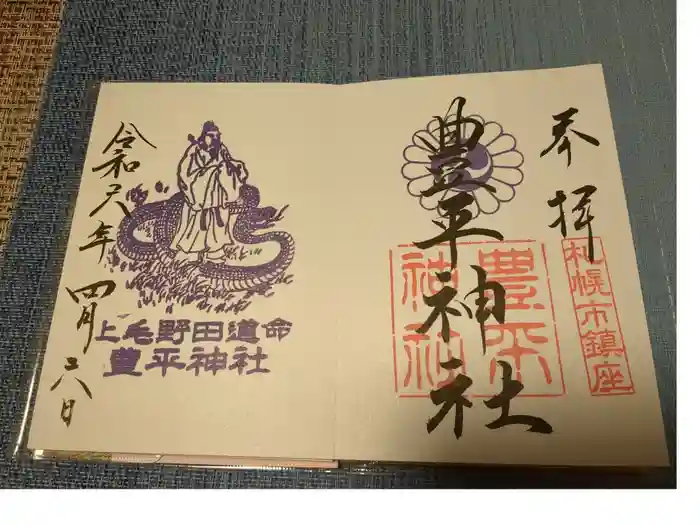 奉拝
札幌市鎮座
豊平神社
豊平神社
上毛野田道命
豊平神社
令和六年
四月六日